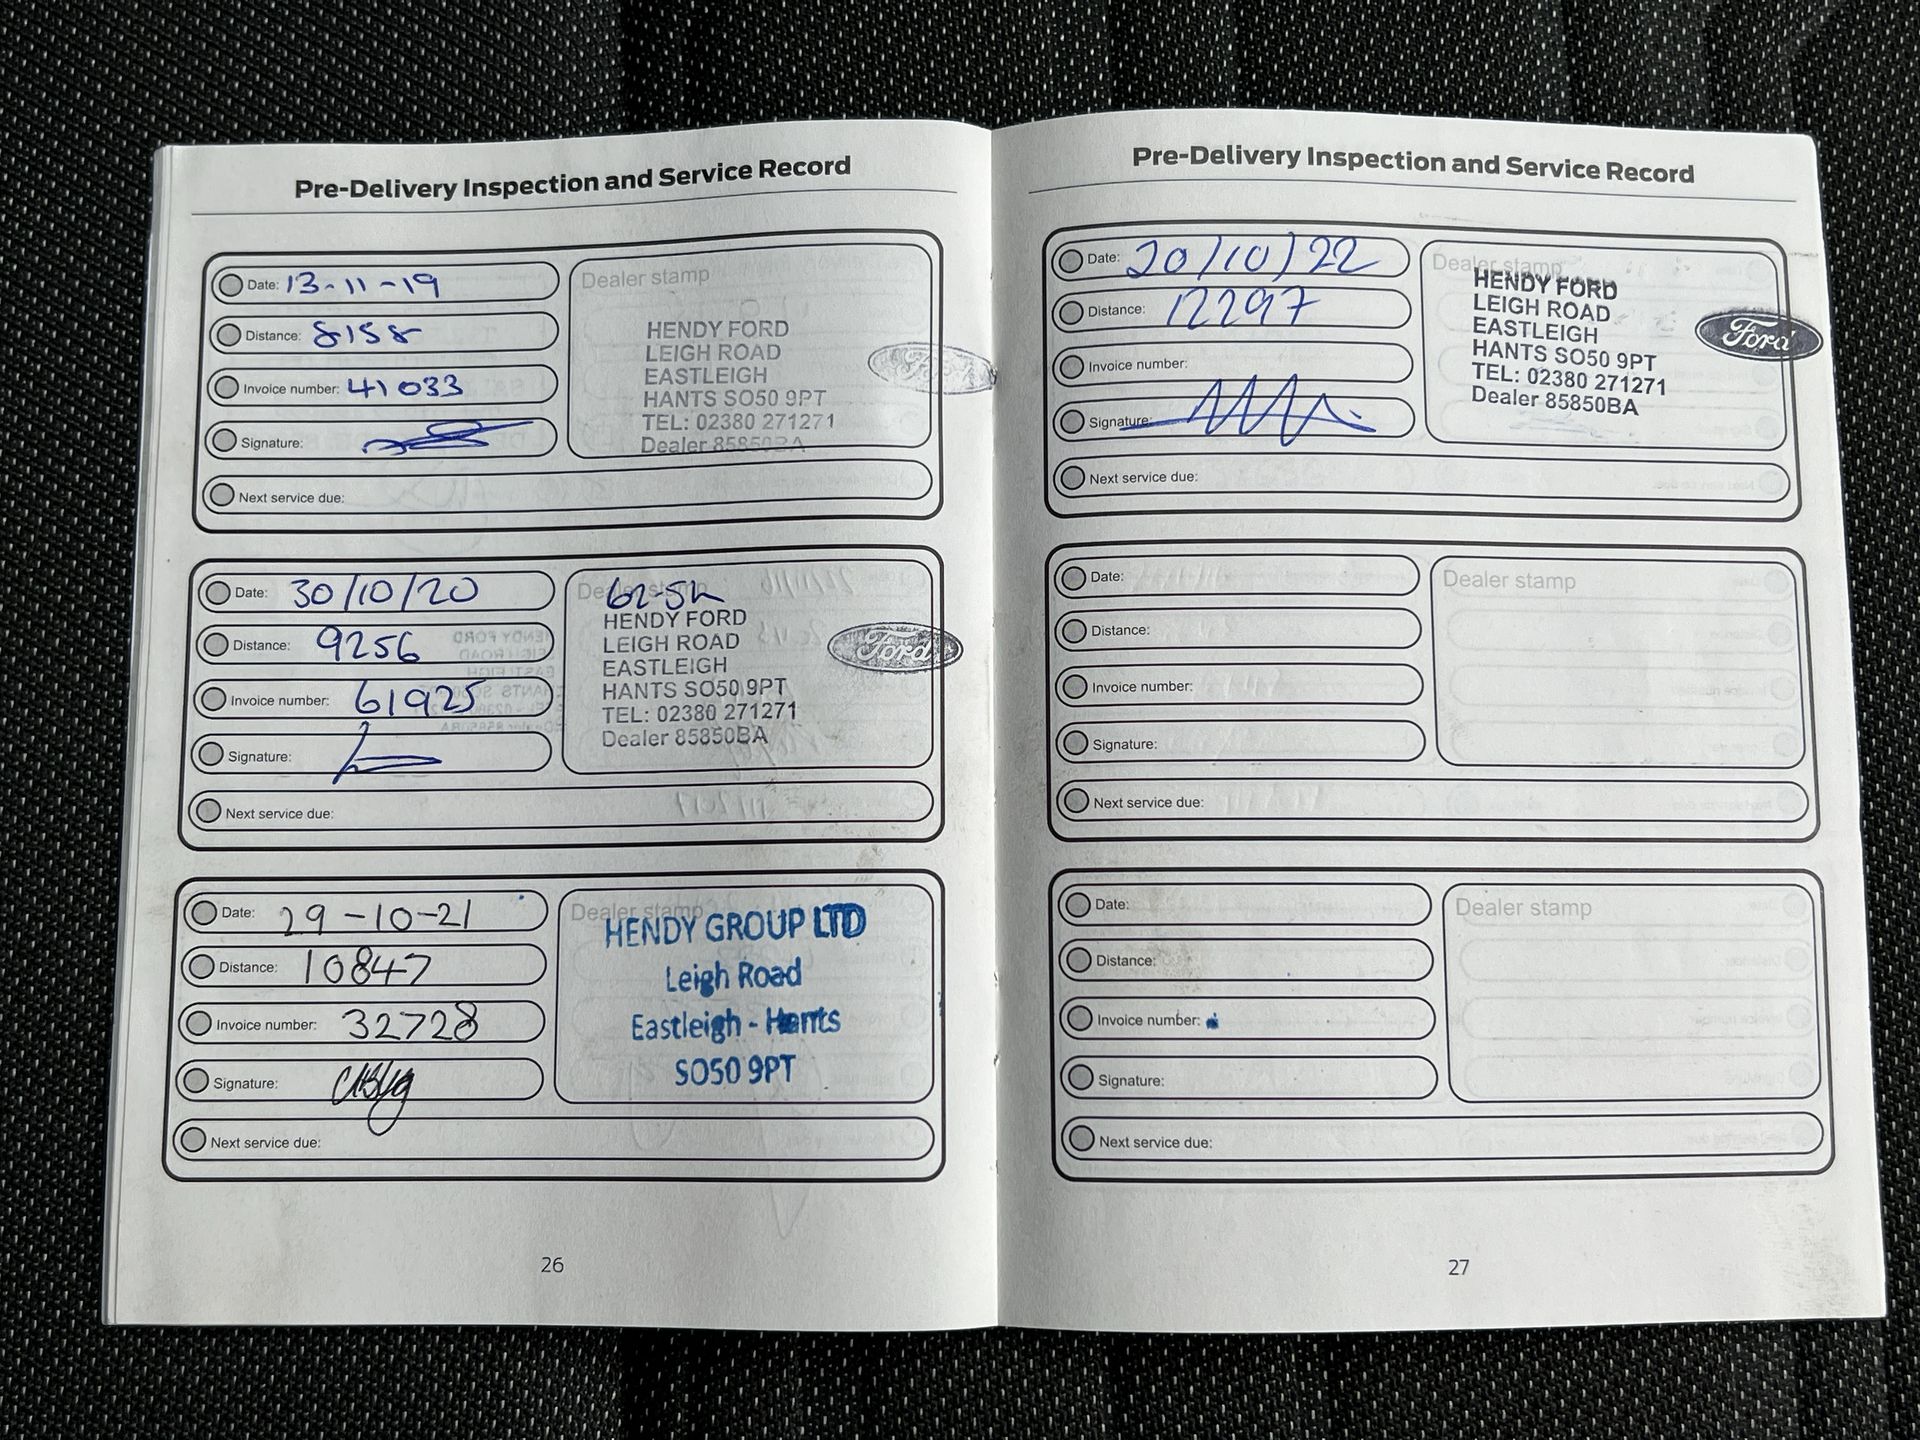 Pre-Delivery Inspection and Service Record
Date: 13-11-19
Distance: 8158
Invoice number: 41033
Signature:
Next service due:
Dealer stamp
HENDY FORD
LEIGH ROAD
EASTLEIGH
HANTS SO50 9PT
TEL: 02380 271271
Dealer 85850BA
Date: 30/10/20
Distance: 9256
Invoice number: 61925
Signature:
Next service due:
Dealer stamp
HENDY FORD
LEIGH ROAD
EASTLEIGH
HANTS SO50 9PT
TEL: 02380 271271
Dealer 85850BA
Ford
Date: 29-10-21
Distance: 10847
Invoice number: 32728
Signature:
Next service due:
Dealer stamp
HENDY GROUP LTD
Leigh Road
Eastleigh - Hants
SO50 9PT
26
Pre-Delivery Inspection and Service Record
Date: 20/10/22
Distance: 12297
Invoice number:
Signature:
Next service due:
Dealer stamp
HENDY FORD
LEIGH ROAD
EASTLEIGH
HANTS SO50 9PT
TEL: 02380 271271
Dealer 85850BA
Ford
Date:
Distance:
Invoice number:
Signature:
Next service due:
Dealer stamp
Date:
Distance:
Invoice number:
Signature:
Next service due:
Dealer stamp
27